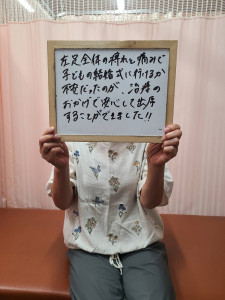 左足全体の痺れと痛みで
子どもの結婚式に行けるか
不安だったのが、治療の
おかげで安心して出席
することができました!!